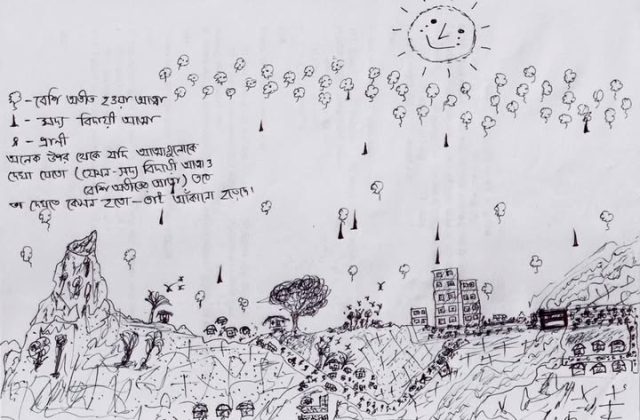 - বেশি অতীত হওয়া আত্মা
- সদ্য বিদায়ী আত্মা
- প্রাণী
অনেক উপর থেকে যদি আত্মাগুলোকে
দেখা যেতো (যেমন-সদ্য বিদায়ী আত্মা ও
বেশি অতীতের আত্মা) তবে
তা দেখতে কেমন হতো-তাই আঁকানো হয়েছে।